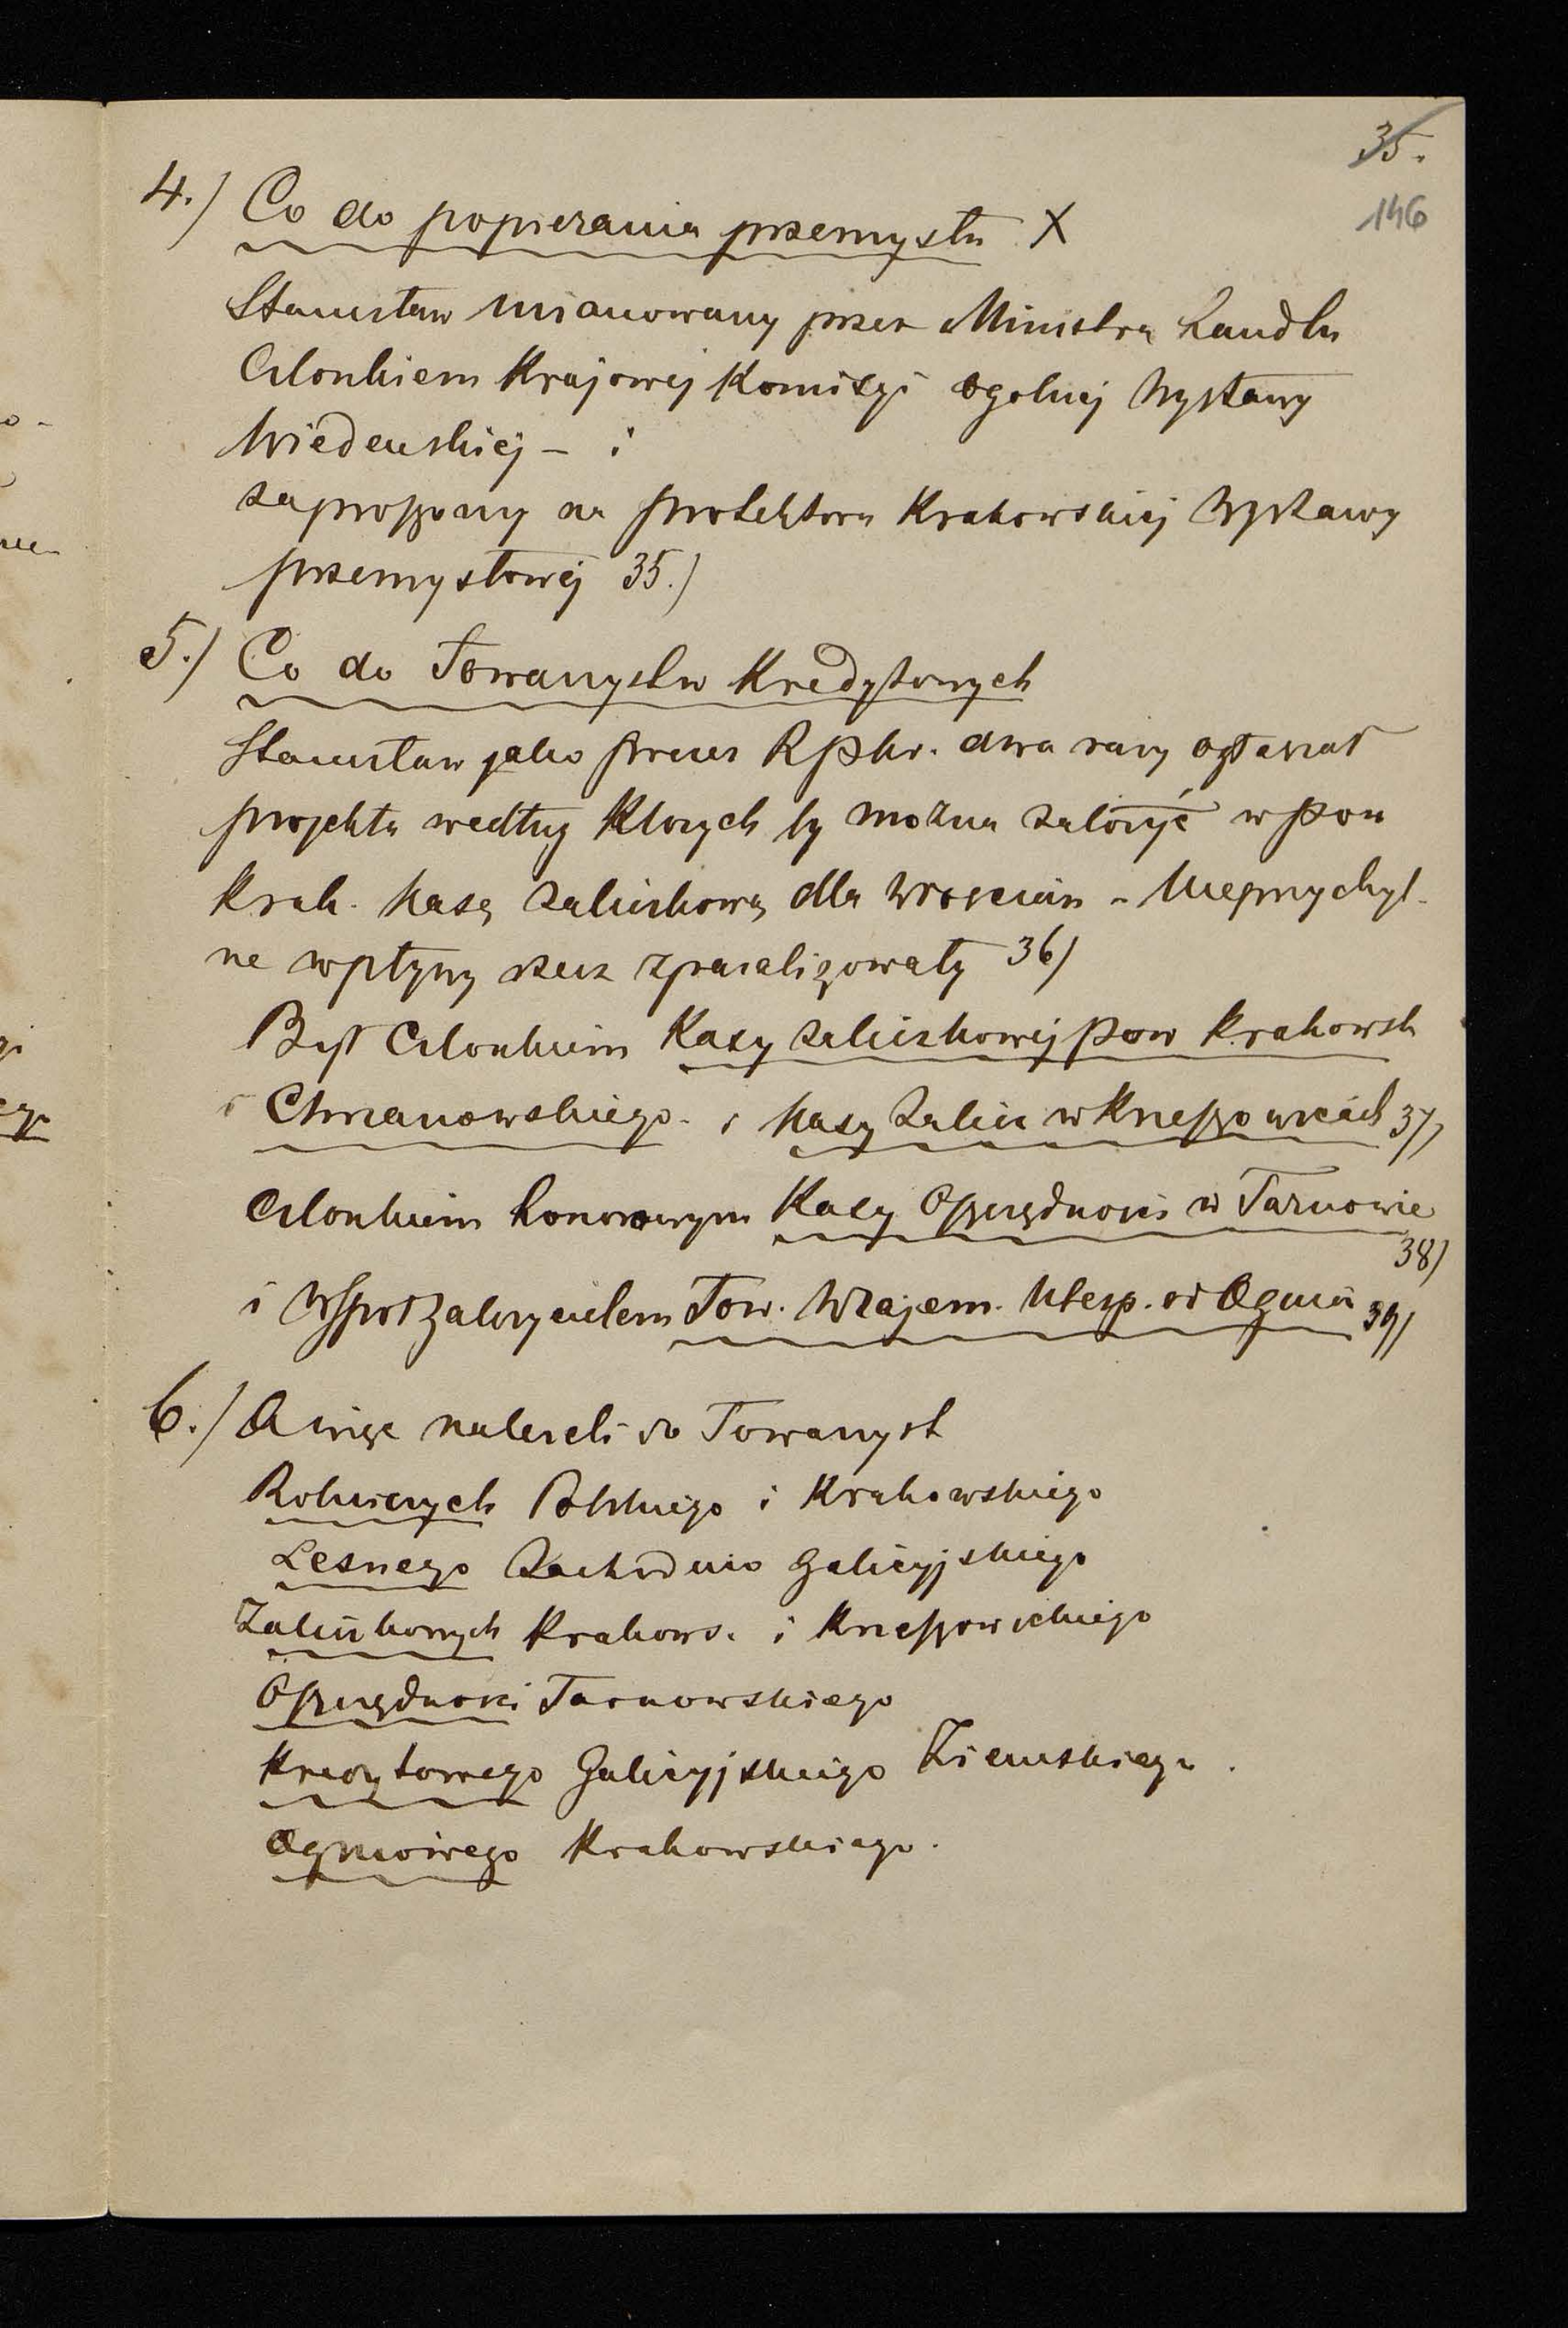 35.
146
4.) Co do popierania przemysłu X
Stanisław mianowany przez Ministra handlu
Członkiem Krajowej Komisyi ogolnej Wystawy
Wiedenskiej – i
zaproszony na protektora Krakowskiej Wystawy
przemysłowej 35.)
5.) Co do Towarzystw Kredytowych
Stanisław jako prezes Rpkr. dwa razy ogłaszał
projekta według ktorych by można założyć w pow
krak. kasę zaliczkową dla Włoscian – Nieprzychyl-
ne wpłyny rzecz zparaliżowały 36)
Był Członkiem Kasy zaliczkowej pow krakowsk
i Chrzanowskiego – i kasy zalicz w Krzeszowicach 37)
Członkiem honorowym Kasy Oszczędnosci w Tarnowie
38)
i Wspołzałozycielem Tow. Wzajem. Ubesp. od Ognia 39)
6.) A więc nalezeli do Towarzyst
Rolniczych Polskiego i Krakowskiego
Lesnego Zachodnio Galicyjskiego
Zaliczkowych Krakows. i Krzeszowickiego
Oszczędnosci Tarnowskiego
Kredytowego Galicyjskiego Ziemskiego.
Ogniowego Krakowskiego.